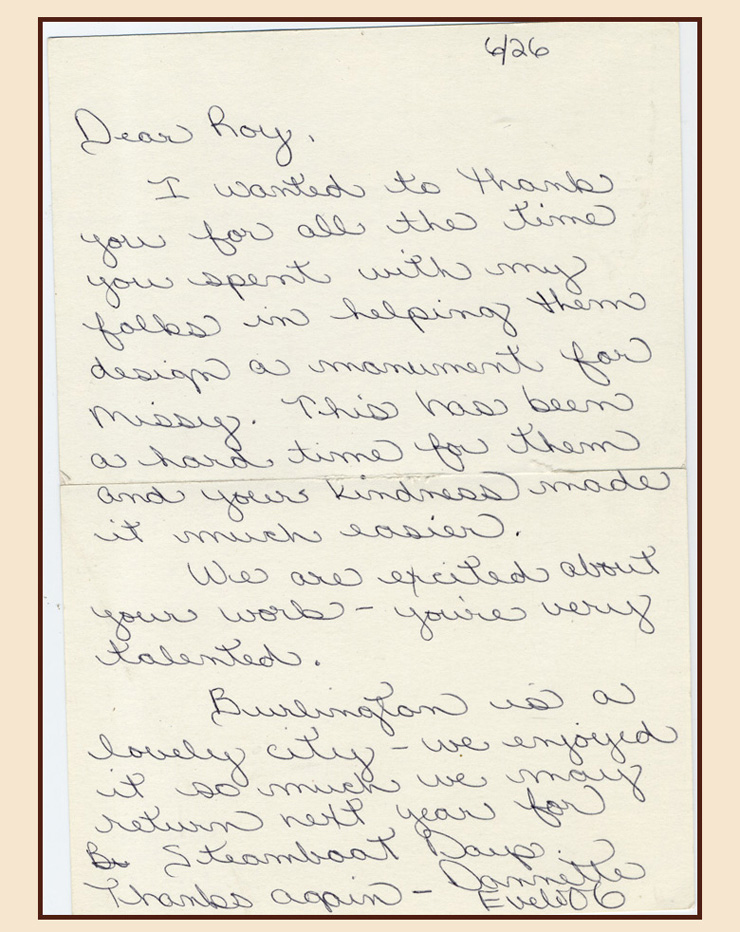 6/26
Dear Roy,
I wanted to thank
you for all the time
you spent with my
folks in helping them
design a monument for
Missy. This has been
a hard time for them
and your kindness made
it much easier.
We are excited about
your work - you're very
talented.
Burlington is a
lovely city - we enjoyed
it so much we may
return next year for
Steamboat Days.
Thanks again - Dannette